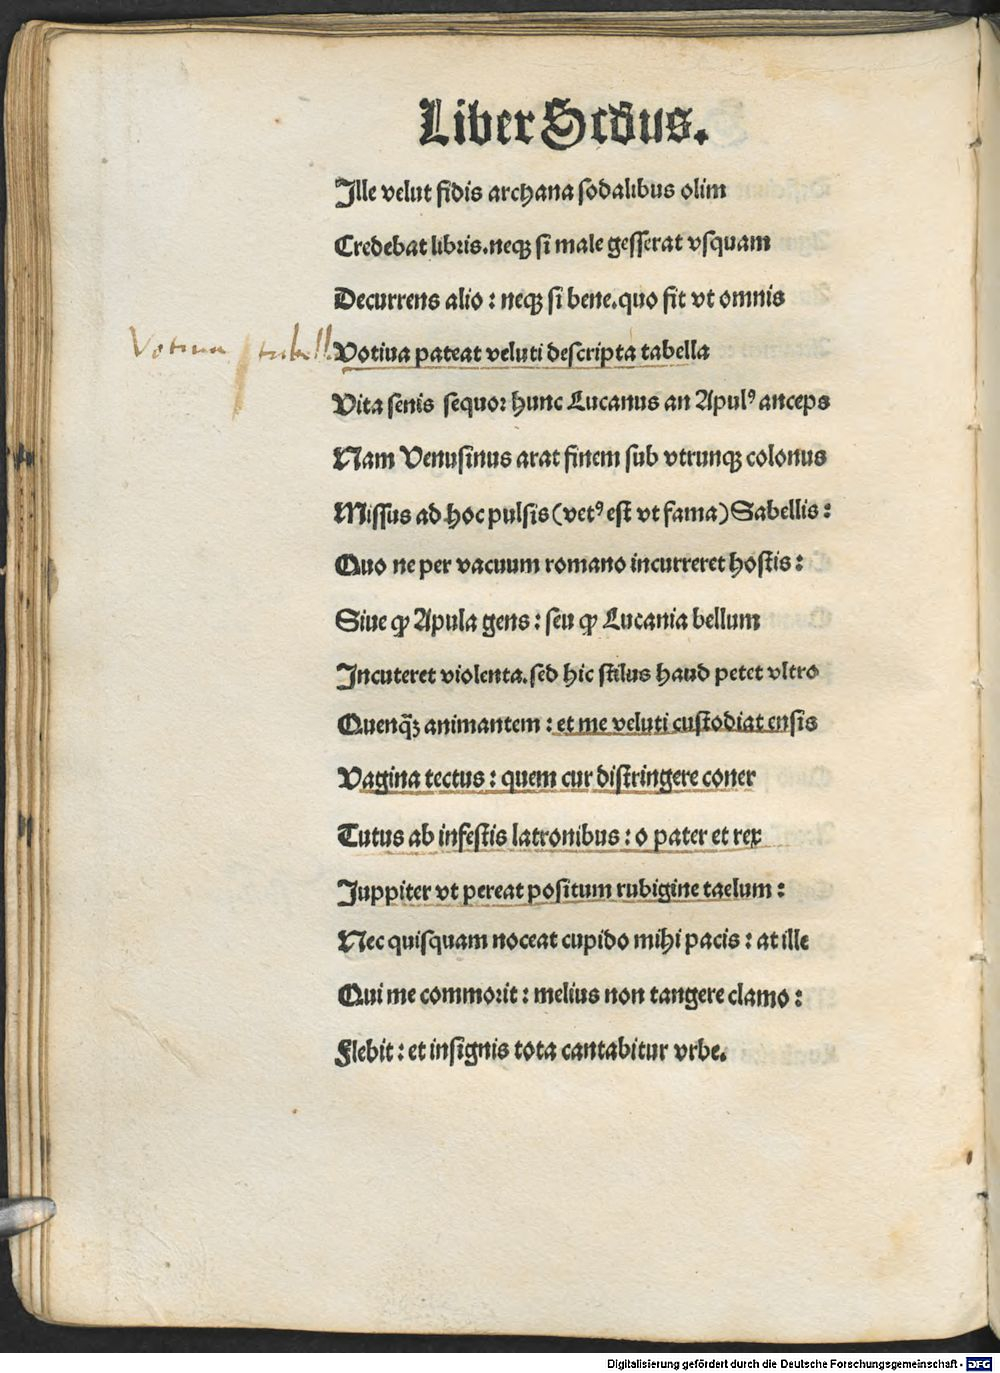 Liber Scd̄us.
Ille velut fidis archana sodalibus olim
Credebat libris.neqꝫ si male gesserat vsquam
Decurrens alio : neqꝫ si bene.quo fit vt omnis
Votiua tabella
Votiua pateat veluti descripta tabella
Vita senis sequor hunc Lucanus an Apulꝰ anceps
Nam Venusinus arat finem sub vtrunqꝫ colonus
Missus ad hoc pulsis (vetꝰ est vt fama) Sabellis :
Quo ne per vacuum romano incurreret hostis :
Siue ꝙ Apula gens : seu ꝙ Lucania bellum
Incuteret violenta.sed hic stilus haud petet vltro
Quenq̄ꝫ animantem : et me veluti custodiat ensis
Vagina tectus : quem cur distringere coner
Tutus ab infestis latronibus : o pater et rex
Juppiter vt pereat positum rubigine taelum :
Nec quisquam noceat cupido mihi pacis : at ille
Qui me commorit : melius non tangere clamo :
Flebit : et insignis tota cantabitur vrbe.
Digitalisierung gefördert durch die Deutsche Forschungsgemeinschaft - DFG